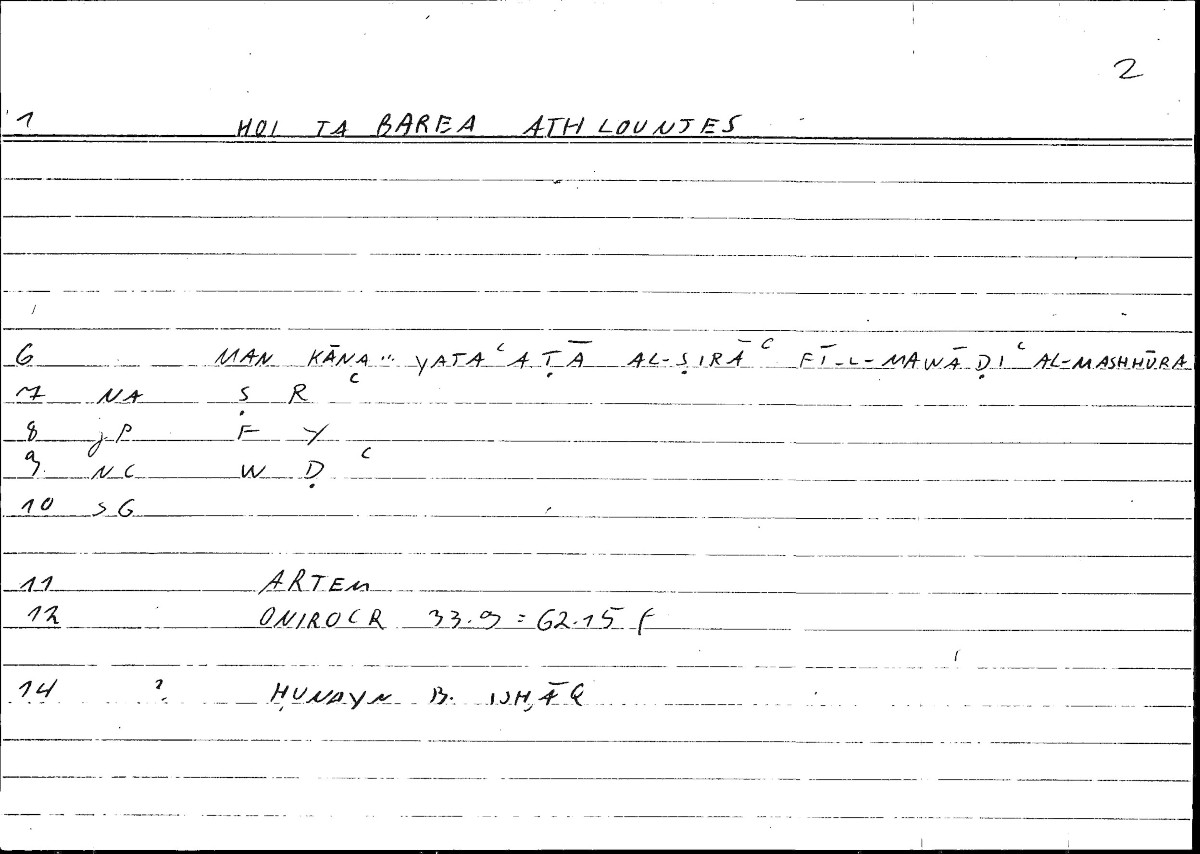 2
1 HOI TA BAREA ATHLOUNTES
6 MAN KĀNA... YATAʿAṬĀ AL-ṢIRĀʿ FĪ-L-MAWĀḌIʿ AL-MASHHŪRA
7 NA Ṣ R ʿ
8 jP F Y
9 NC W Ḍ ʿ
10 SG
11 ARTEM
12 ONIROCR 33.9 = 62.15 f
14 ? ḤUNAYN B. ISḤĀQ